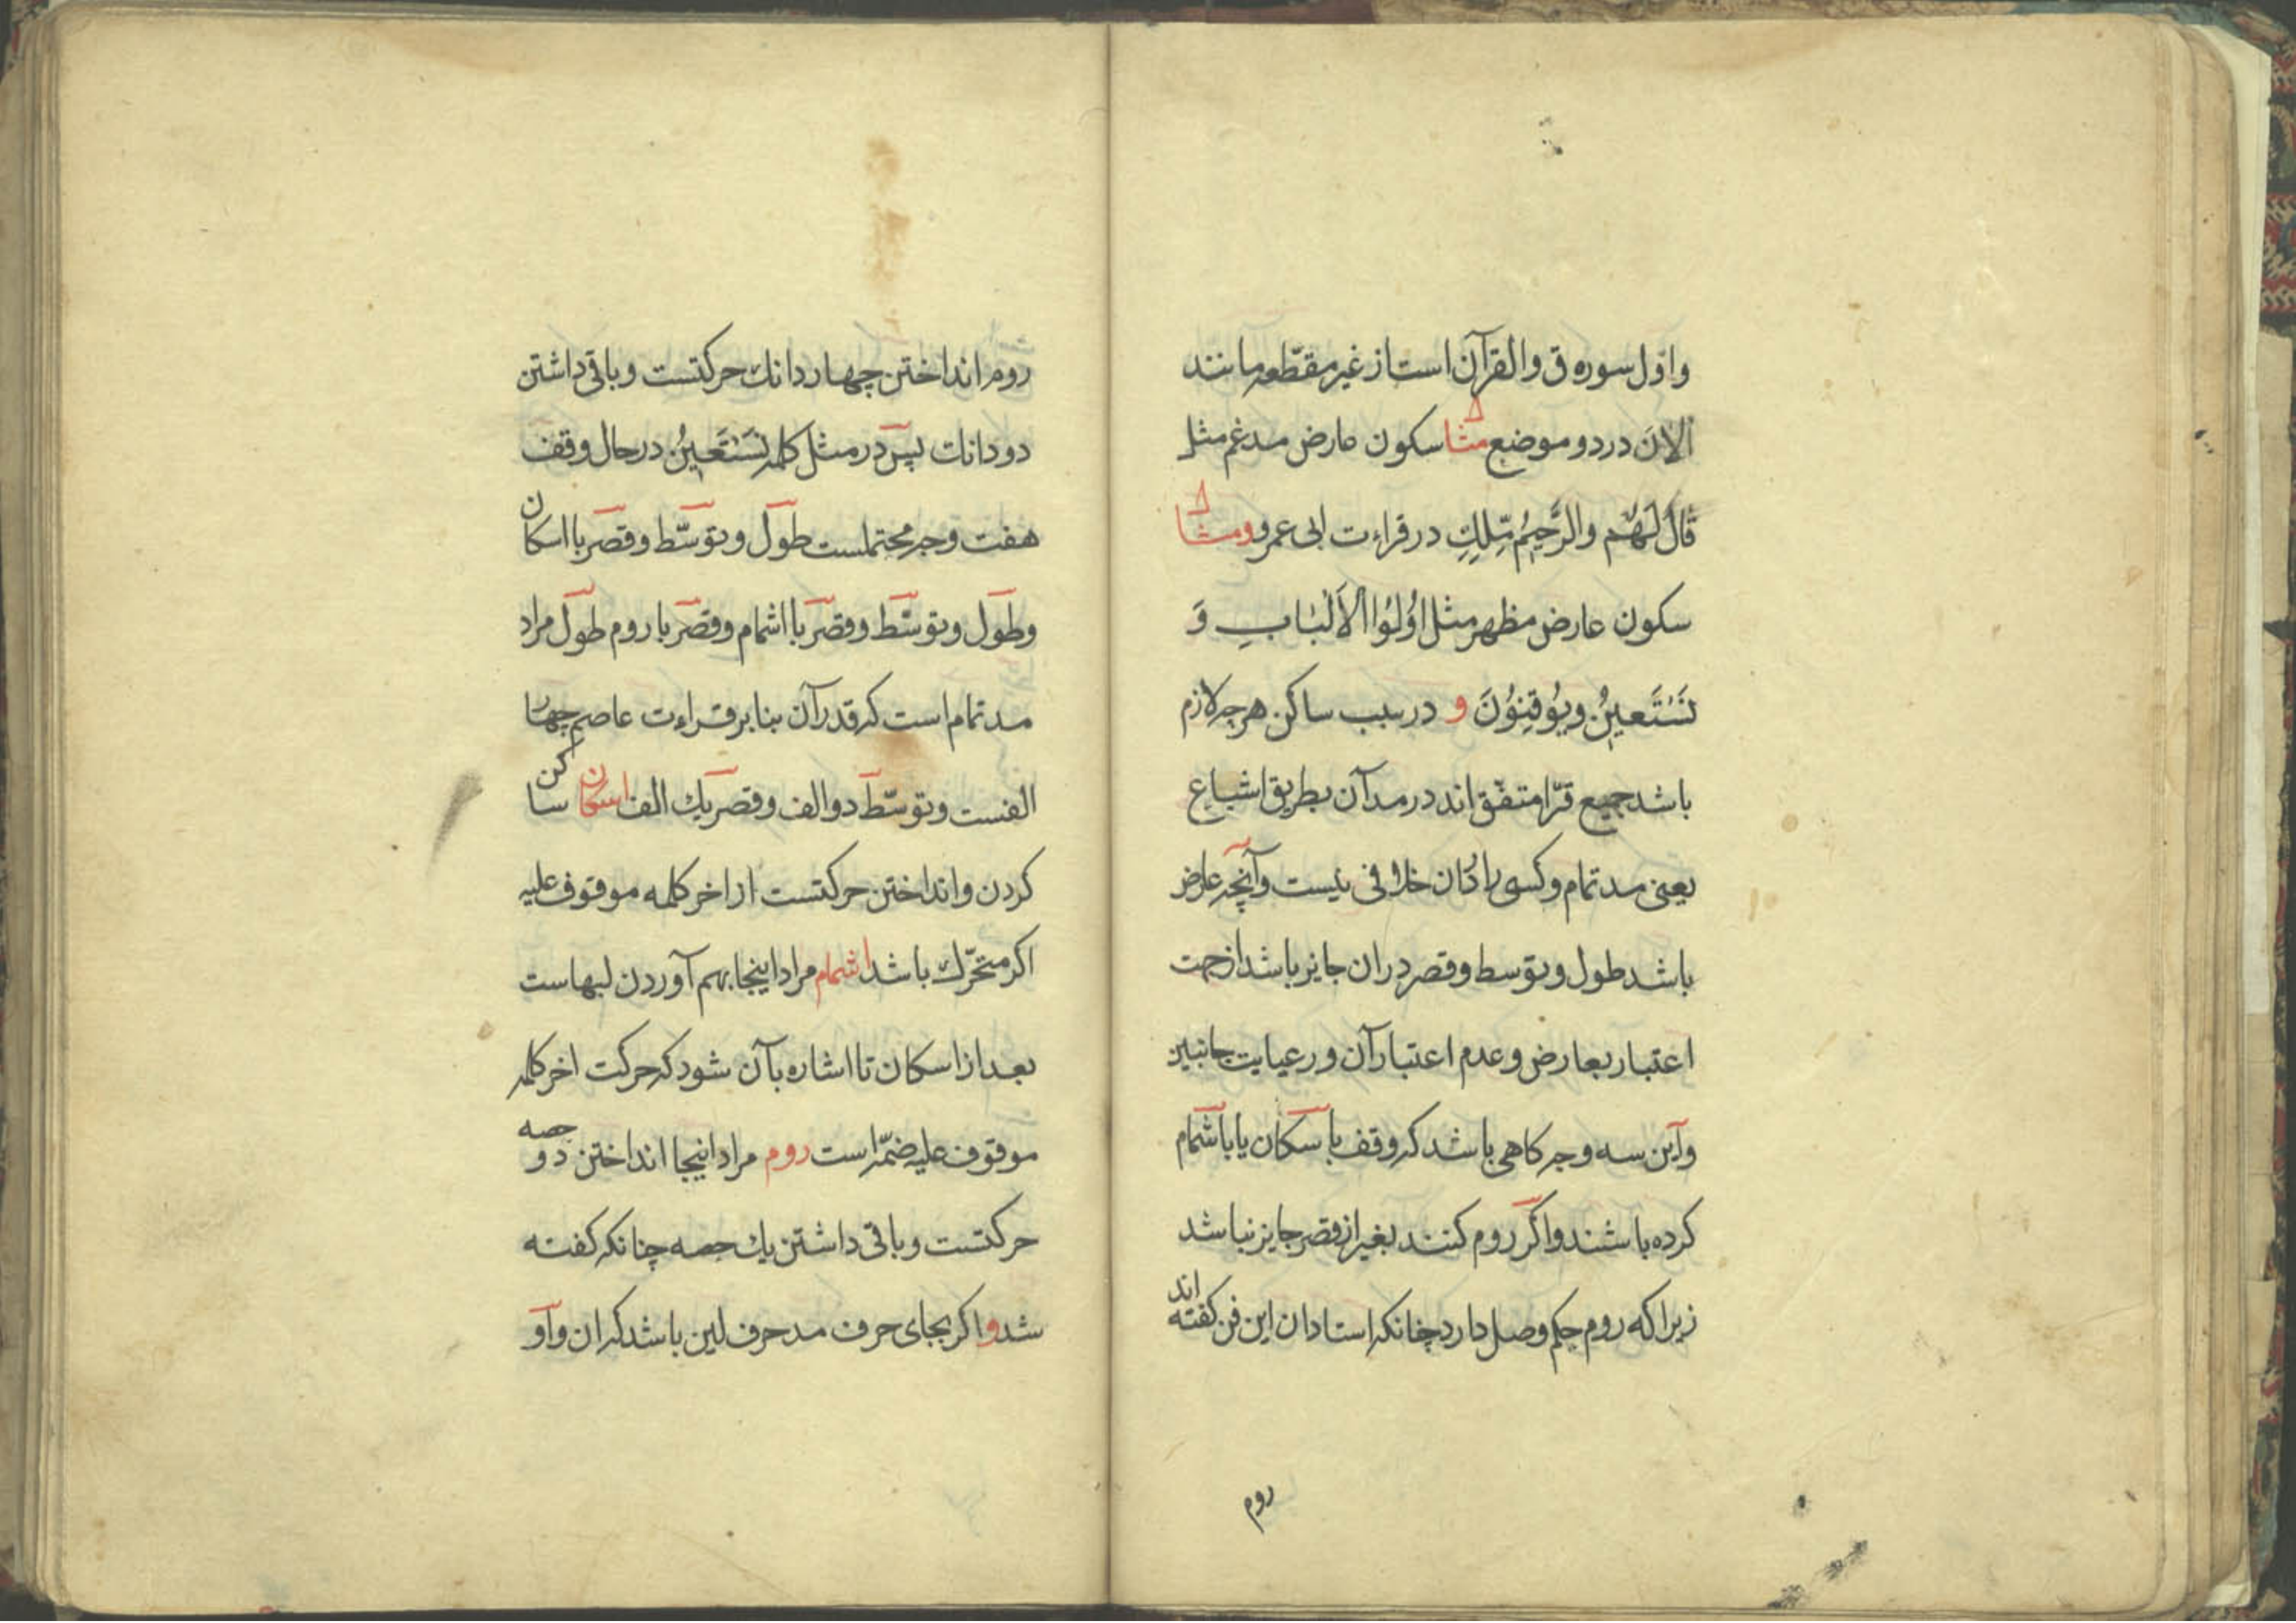 واوّل سوره ق والقرآن است از غیر مقطّعه مانند
الانَ در دو موضع مثال سکون عارض مدغم مثل
قَالَ لَهُم والرَّحِیُم مَّلِكِ در قراءت ابی عمرو ومثال
سکون عارض مظهر مثل اوُلوُا الاَلْبَابِ وَ
نَسْتَعیِنُ ویوُقِنوُنَ و در سبب ساکن هرچه لازم
باشد جمیع قرّا متفّق اند در مد آن بطریق اشباع
یعنی مد تمام وکسی را دران خلافی نیست وآنچه عارض
باشد طول وتوسط وقصر دران جایز باشد از جهت
اعتبار بعارض وعدم اعتبار آن ورعیایت جانبین
واین سه وجه کاهی باشد که وقف باسکان یا باشمام
کرده باشند واکر روم کنند بغیر از قصر جایز نباشد
زیرا که روم حکم وصل دارد چنانکه استادان این فن کفته اند
روم
روم انداختن چهار دانك حرکتست وباقی داشتن
دو دانك پس در مثل کلمه نَسْتَعیِنُ در حال وقف
هفت وجه محتملست طول وتوسّط وقصر با اسکان
وطول وتوسّط وقصر با اشمام وقصر با روم طول مراد
مد تمام است که قدر آن بنابر قراءت عاصم چهار
الفست وتوسّط دو الف وقصر یك الف اسکان ساکن
کردن وانداختن حرکتست از اخر کلمه موقوف علیه
اکر متحرّك باشد اشمام مراد اینجا بهم آوردن لبهاست
بعد از اسکان تا اشاره بآن شود که حرکت اخر کلمه
موقوف علیه ضمّه است روم مراد اینجا انداختن دو حصه
حرکتست وباقی داشتن یك حصه چنانکه کفته
شد واکر بجای حرف مد حرف لین باشد که ان واو